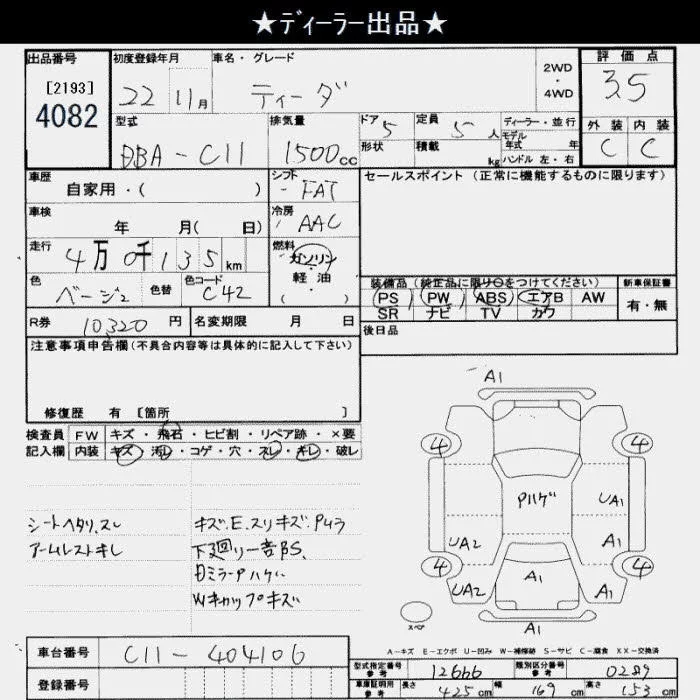 ★ディーラー出品★
出品番号
[2193]
4082
初度登録年月
22 11月
車名・グレード
ティーダ
2WD
・
4WD
評価点
3.5
外装 内装
C C
型式
DBA-C11
排気量
1500cc
ドア
5
定員
5人
形状
積載
kg
ディーラー・並行
モデル
年式 年
ハンドル 左・右
車歴
自家用・( )
シフト
FAT
セールスポイント(正常に機能するものに限ります)
車検
年 月( 日)
冷房
AAC
走行
4万0千135km
燃料
ガソリン
・
軽・油
( )
色
ベージュ
色替
色コード
C42
装備品(純正品に限り○をつけてください)
PS PW ABS エアB AW
SR ナビ TV カワ
新車保証書
有・無
R券
10320円
名変期限 月 日
後日品
注意事項申告欄(不具合内容等は具体的に記入して下さい)
修復歴 有 [箇所 ]
検査員
記入欄
FW キズ・飛石・ヒビ割・リペア跡・×要
内装 キズ・汚レ・コゲ・穴・スレ・キレ・破レ
シートヘタリ、スレ
アームレストキレ
キズ、E、スリキズ、Pムラ
下廻り一音BS、
ミラーPハゲ
Wキャップキズ
A1
4
4
Pハゲ
UA1
UA2
A1
4
4
UA2
A1
A1
A1
スペア
A-キズ E-エクボ U-凹み W-補修跡 S-サビ C-腐食 XX-交換済
車台番号
C11-404106
登録番号
型式指定番号
参考
12666
類別区分番号
参考
0289
車庫証明用
参考
長さ
425cm
幅
169cm
高さ
153cm